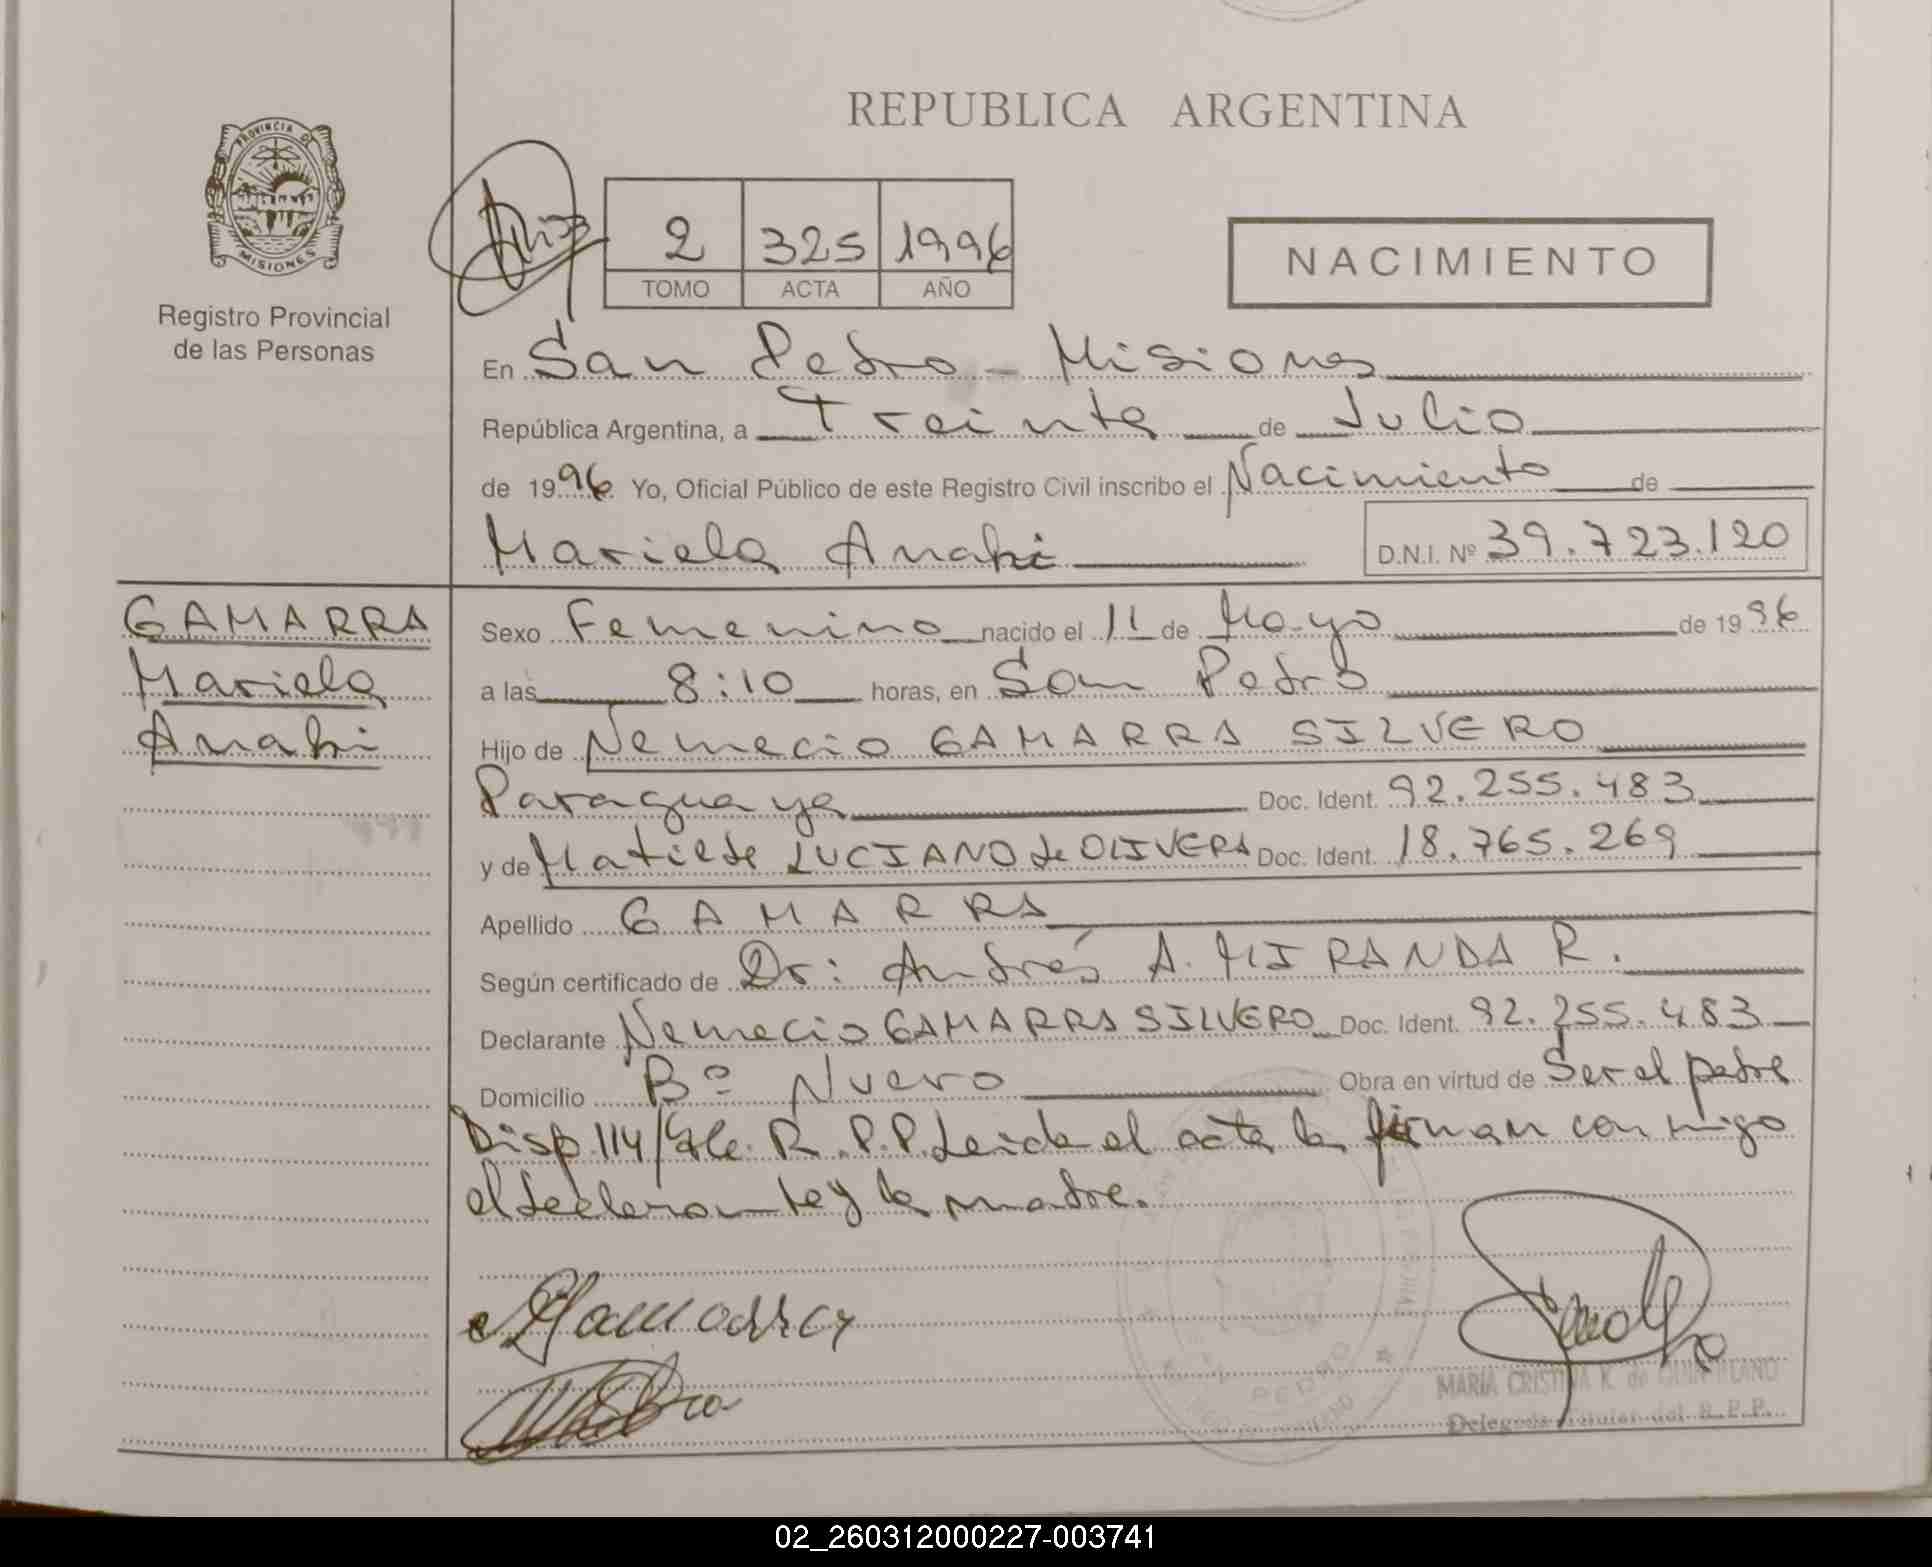 REPUBLICA ARGENTINA
PROVINCIA DE
MISIONES
Registro Provincial
de las Personas
2 325 1996
TOMO ACTA AÑO
NACIMIENTO
En San Pedro - Misiones
República Argentina, a Treinta de Julio
de 1996 Yo, Oficial Público de este Registro Civil inscribo el Nacimiento de
Mariela Anahi D.N.I. Nº 39.723.120
GAMARRA
Mariela
Anahi
Sexo Femenino nacido el 11 de Mayo de 1996
a las 8:10 horas, en San Pedro
Hijo de Nemecio GAMARRA SILVERO
Paraguaya Doc. Ident. 92.255.483
y de Matilde LUCIANO de OLIVERA Doc. Ident. 18.765.269
Apellido GAMARRA
Según certificado de Dr: Andrés A. MIRANDA R.
Declarante Nemecio GAMARRA SILVERO Doc. Ident. 92.255.483
Domicilio Bº Nuevo Obra en virtud de Ser el padre
Disp. 114/ R.P.P. Leida el acta la firman conmigo
el declarante y la madre.
MARIA CRISTINA K. de
Delegada Titular del R.P.P.
02_260312000227-003741